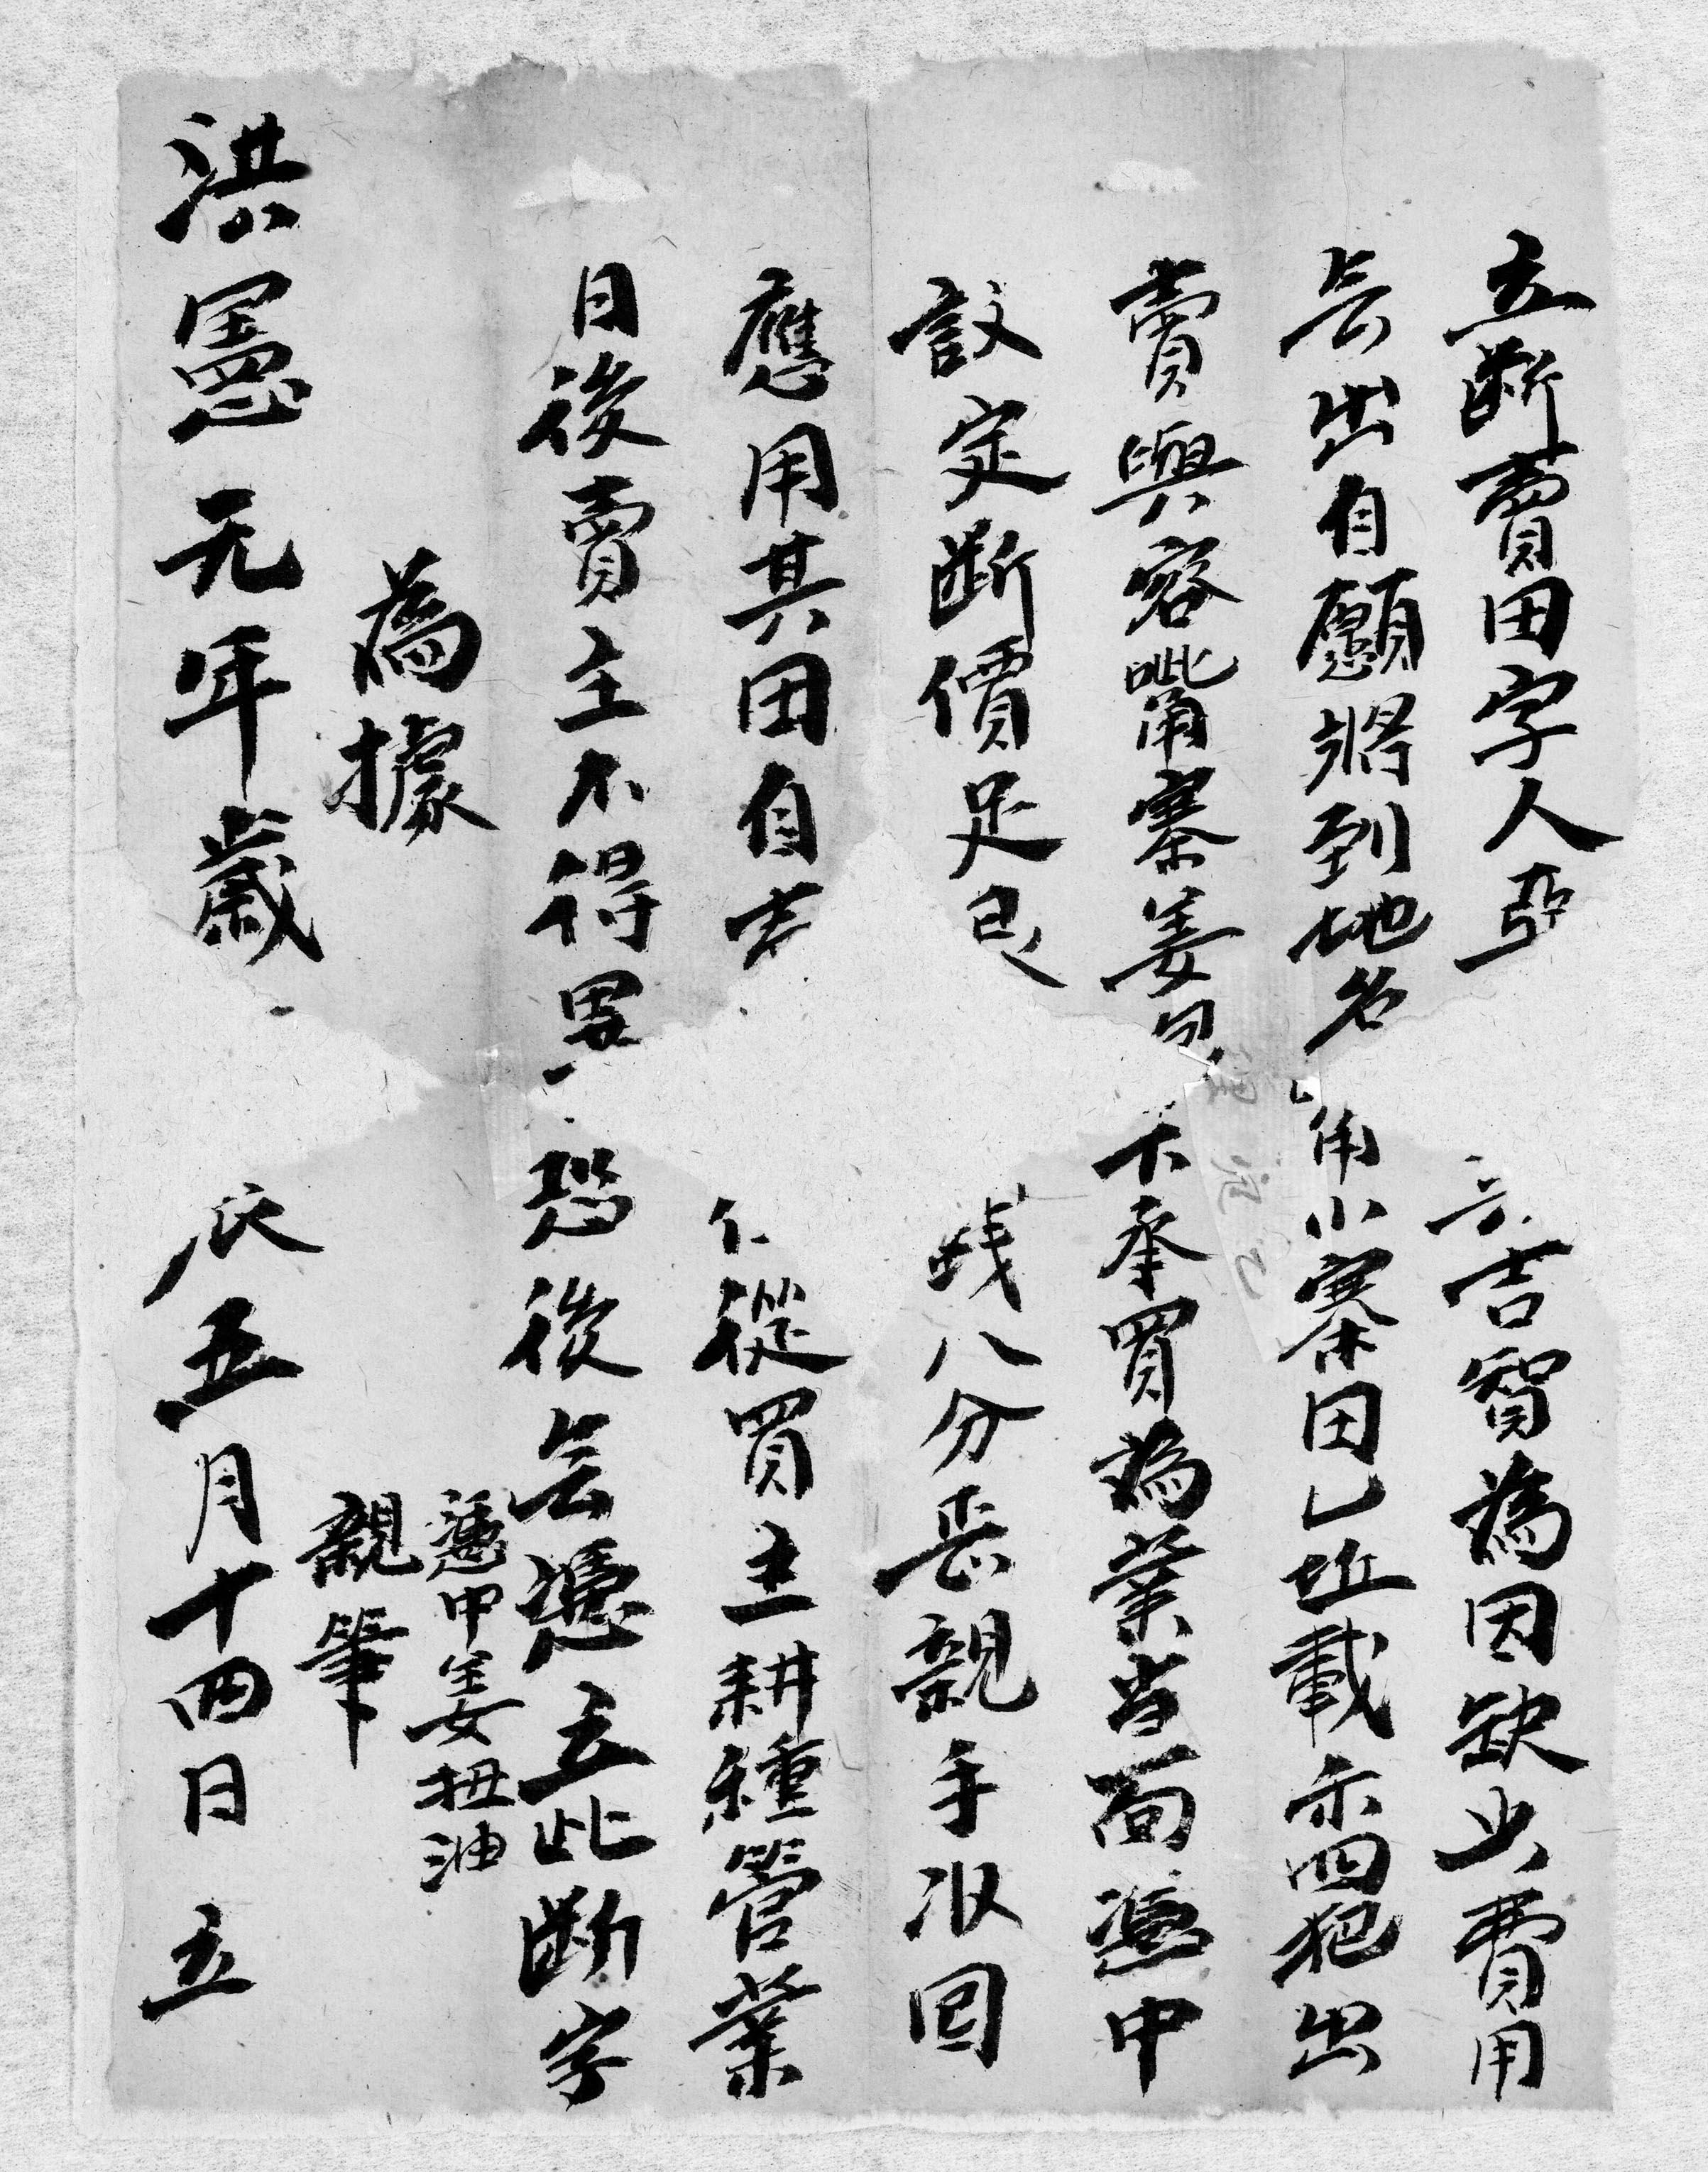 立断賣田字人亞 吉智為因缺少費用
無出自願將到地名 角小寨田乚坵載禾四把出
賣與容嘴寨姜 承買為業当面憑中
議定断價足艮 八分 親手收回
應用其田自 從買主耕種管業
日後賣主不得異 恐後無憑立此断字
為據
憑中姜扭油
親筆
洪憲元年歲 辰五月十四日 立